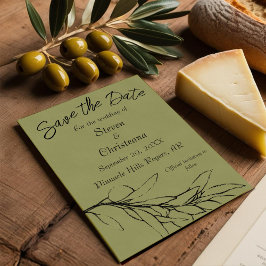 Save the Date
For the wedding of
Steven
&
Christeona
September 20, 20XX
Pinnacle Hills Rogers, AR
Official invitation to
follow